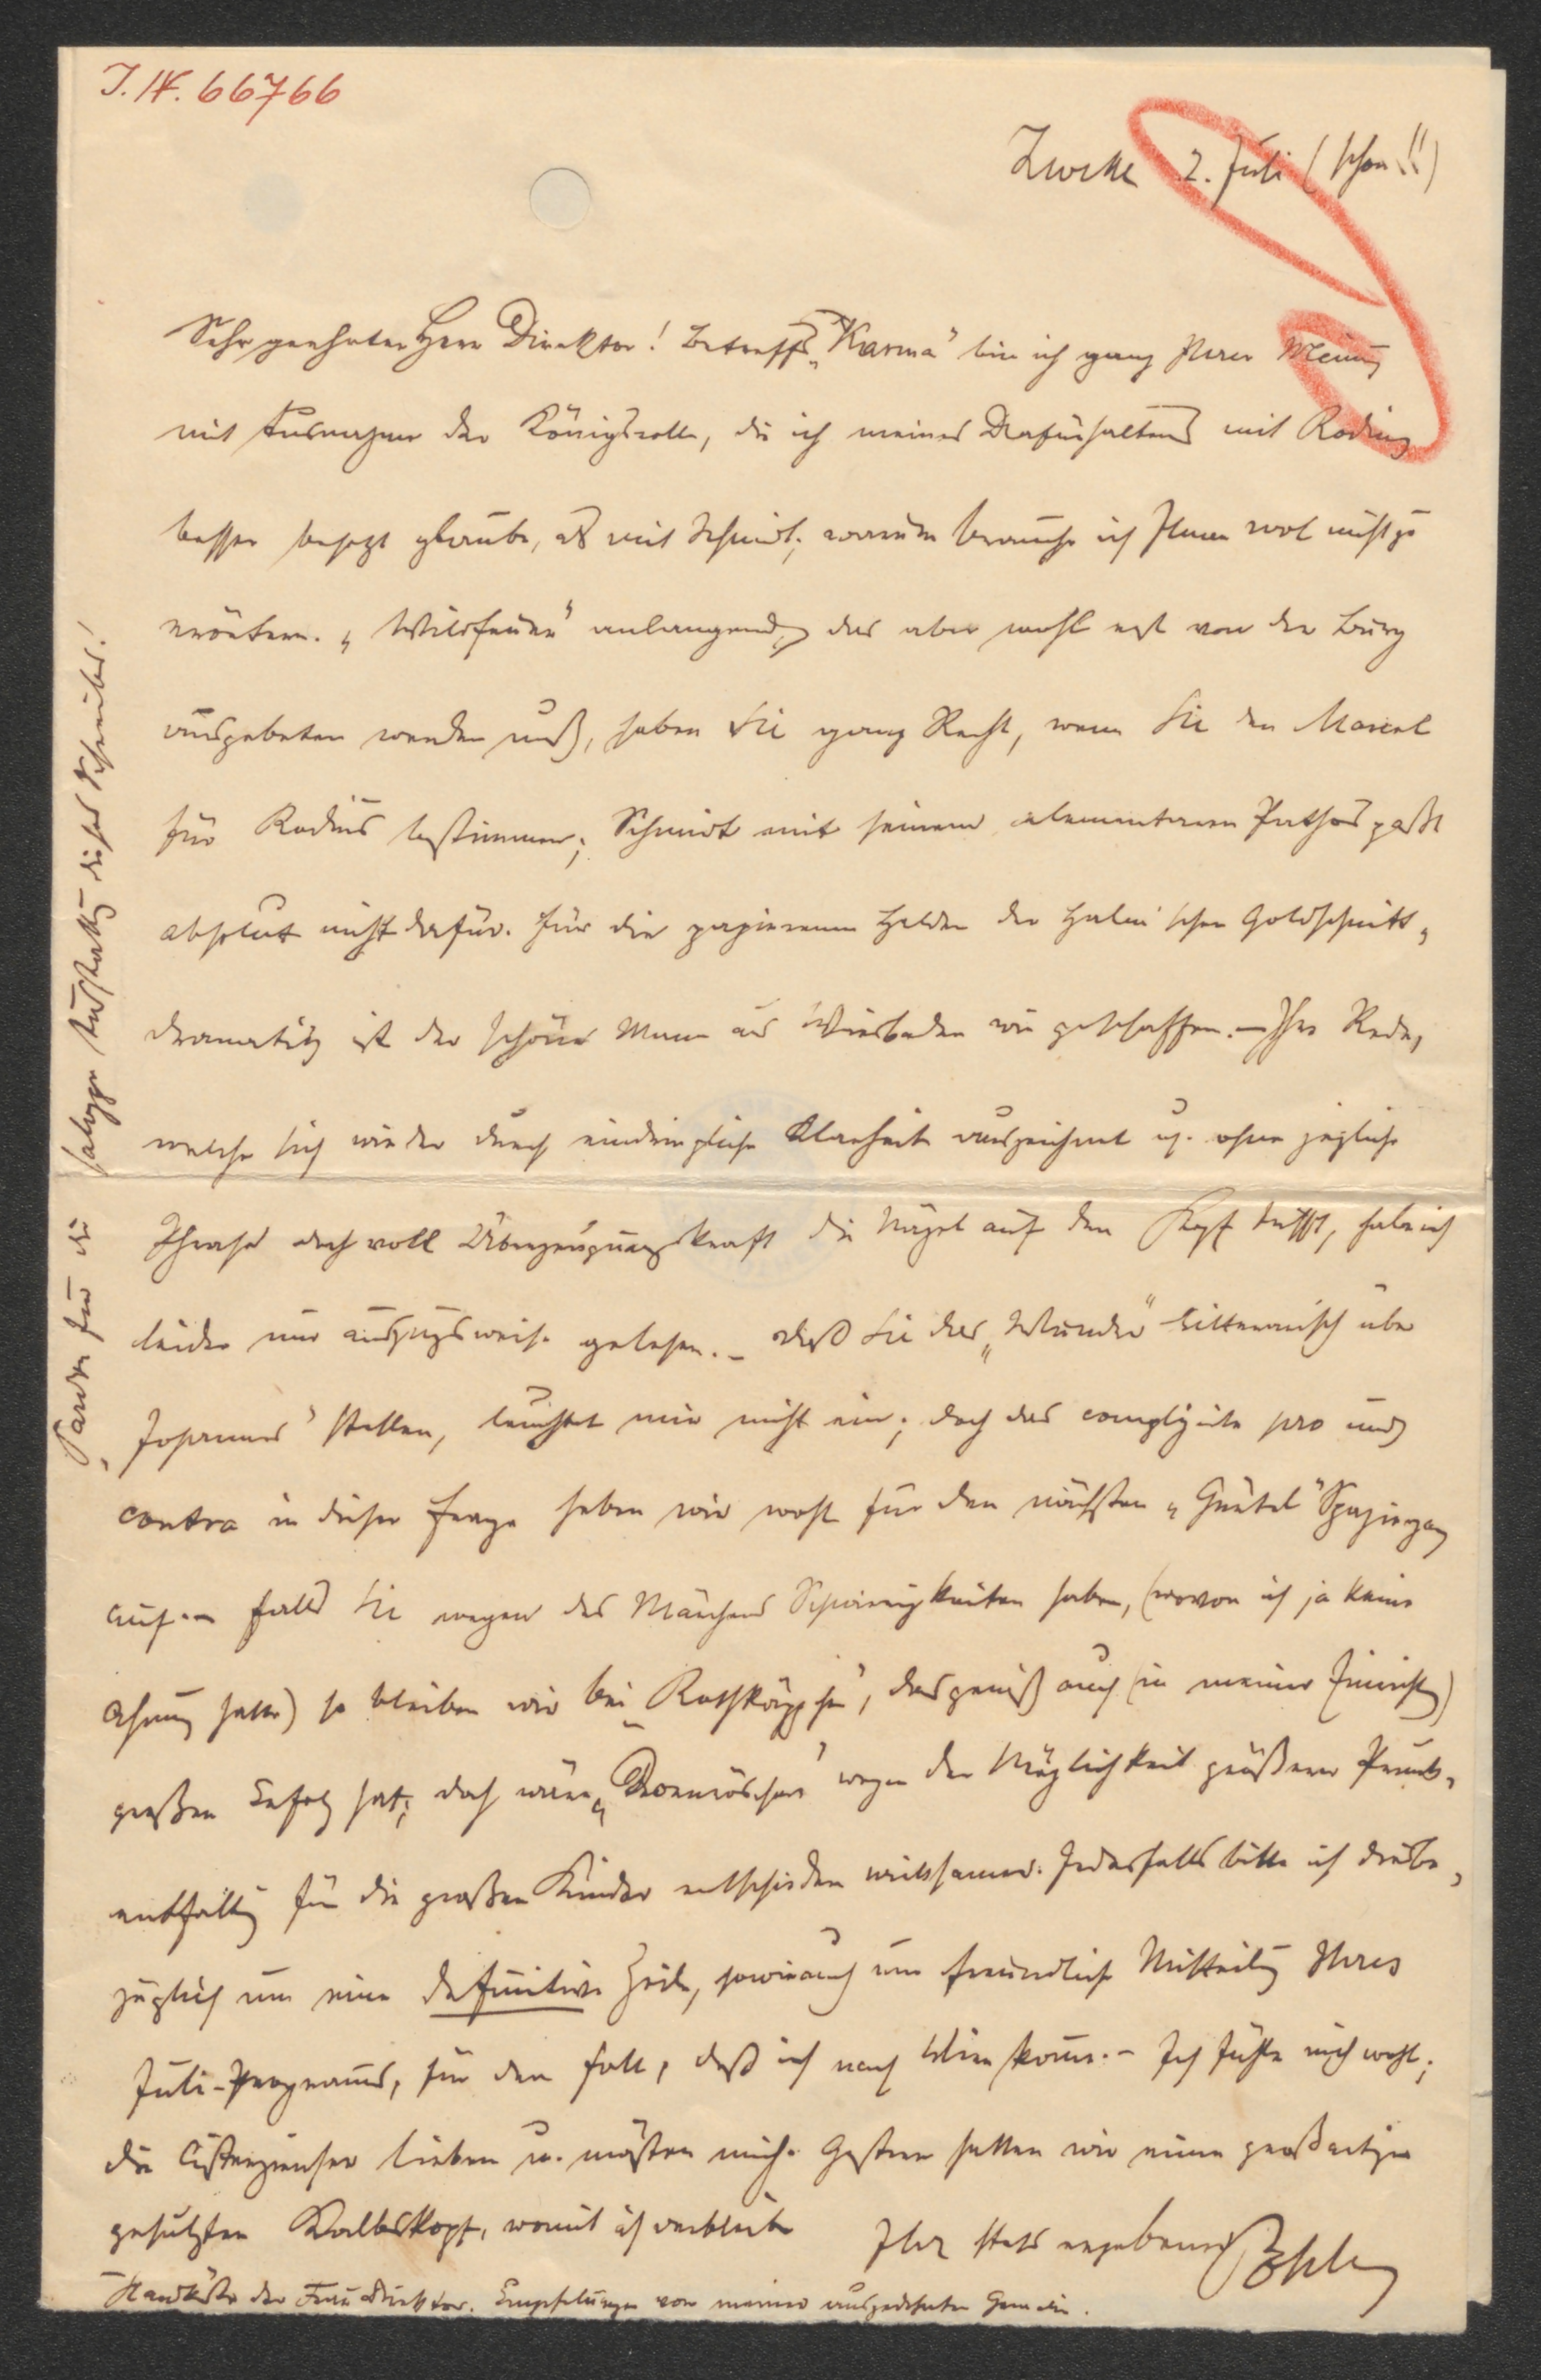 J. N. 66766
Zwettl 2. Juli (schon!!)
Sehr geehrter Herr Direktor! Betreffs „Karma" bin ich ganz Ihrer Meinung
mit Ausnahme der Königsrolle, die ich meines Dafürhaltens mit Rodius
besser besetzt glaube, als mit Schmidt; warum brauche ich Ihnen wol nicht zu
erörtern. „Wildfeuer" anlangend, das aber wohl erst von der Burg
ausgebeten werden muß, haben Sie ganz Recht, wenn Sie den Marcel
für Rodius bestimmen; Schmidt mit seinem elementaren Pathos paßt
absolut nicht dafür. Für die papierenen Helden der Halm'schen Goldschnitt-
dramatik ist der schöne Mann aus Wiesbaden wie geschaffen. – Ihre Rede,
welche sich wieder durch eindringliche Klarheit auszeichnet u. ohne jegliche
Phrase doch voll Überzeugungskraft die Nägel auf den Kopf trifft, habe ich
leider nur auszugsweise gelesen. – Daß Sie das „Wunder" litterarisch über
„Johannes" stellen, leuchtet mir nicht ein; doch das complizirte pro und
contra in dieser Frage heben wir wohl für den nächsten „Gürtel" Spaziergang
auf. – Falls Sie wegen des Märchens Schwierigkeiten haben, (wovon ich ja keine
Ahnung hatte) so bleiben wir bei „Rothkäppchen", das gewiß auch (in meiner Zuversicht)
großen Erfolg hat; doch wäre „Dornröschen" wegen der Möglichkeit größerer Prunk-
entfaltung für die großen Kinder entschieden wirksamer. Jedesfalls bitte ich diesbe-
züglich um eine definitive Zeile, sowie auch um freundliche Mitteilung Ihres
Juli-Programms, für den Fall, daß ich nach Wien komme. – Ich fühle mich wohl;
die Cisterzienser lieben u. mästen mich. Gestern hatten wir einen großartigen
gesulzten Kalbskopf, womit ich verbleibe
Ihr stets ergebener
Handküße der Frau Direktor. Empfehlungen von meiner ausgedehnten Gemalin.
Pardon für die saloppe Ausstattung dieses Schreibens!